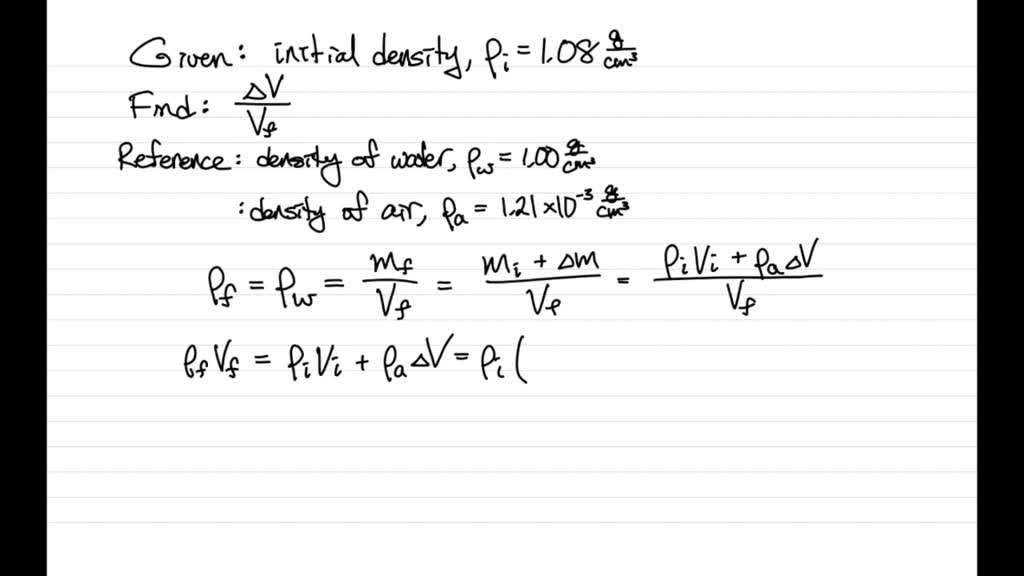 Given: initial density, ρi = 1.08 g/cm³
Find: ΔV/Vf
Reference: density of water, ρw = 1.00 g/cm³
: density of air, ρa = 1.21 × 10⁻³ g/cm³
ρf = ρw = mf/Vf = (mi + Δm)/Vf = (ρiVi + ρaΔV)/Vf
ρfVf = ρiVi + ρaΔV = ρi (